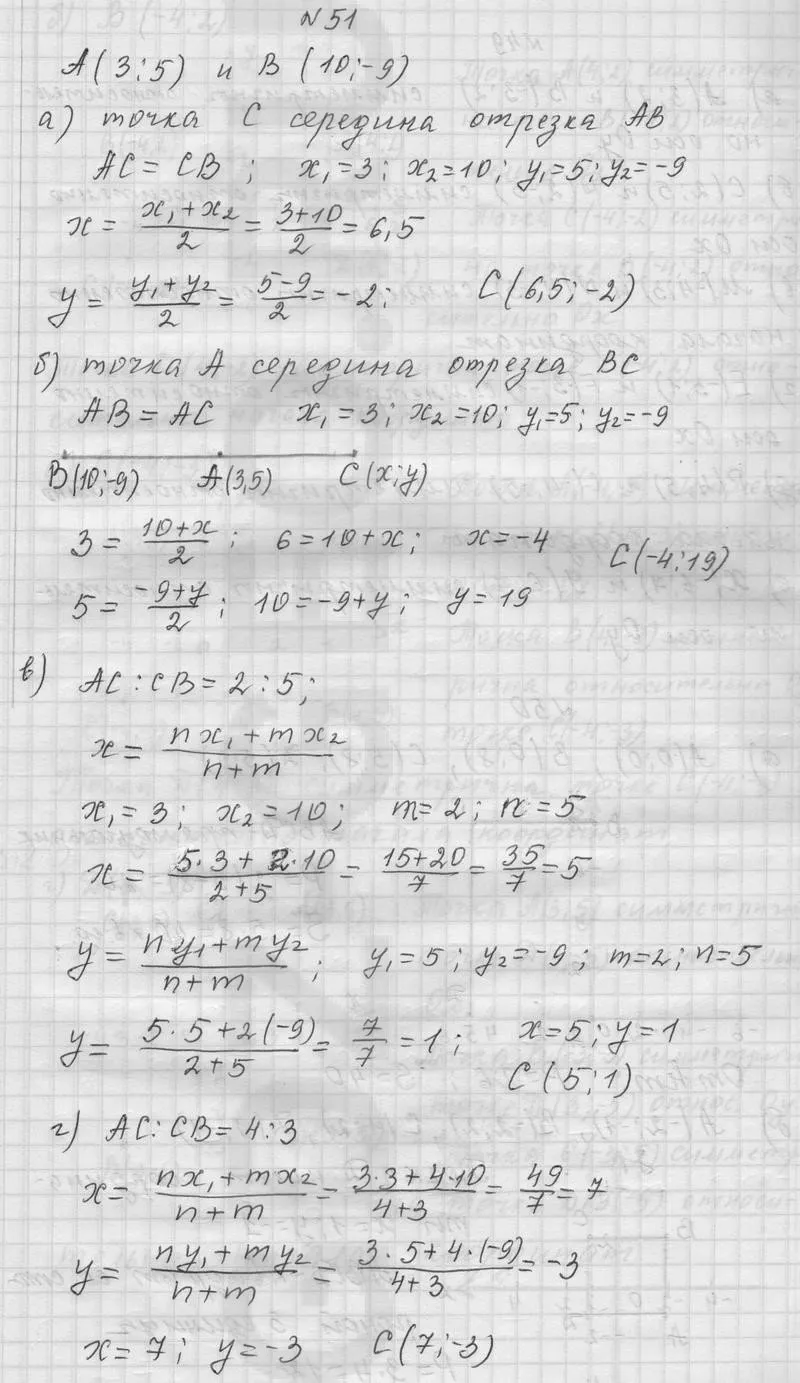 N51
A(3;5) и B(10;-9)
а) точка C середина отрезка AB
AC = CB; x₁=3; x₂=10; y₁=5; y₂=-9
x = (x₁+x₂)/2 = (3+10)/2 = 6,5
y = (y₁+y₂)/2 = (5-9)/2 = -2; C(6,5;-2)
б) точка A середина отрезка BC
AB = AC x₁=3; x₂=10; y₁=5; y₂=-9
B(10;-9) A(3,5) C(x;y)
3 = (10+x)/2; 6=10+x; x=-4
C(-4;19)
5 = (-9+y)/2; 10=-9+y; y=19
в) AC:CB=2:5;
x = (nx₁+mx₂)/(n+m)
x₁=3; x₂=10; m=2; n=5
x = (5·3+2·10)/(2+5) = (15+20)/7 = 35/7 = 5
y = (ny₁+my₂)/(n+m); y₁=5; y₂=-9; m=2; n=5
y = (5·5+2(-9))/(2+5) = 7/7 = 1; x=5; y=1
C(5;1)
г) AC:CB=4:3
x = (nx₁+mx₂)/(n+m) = (3·3+4·10)/(4+3) = 49/7 = 7
y = (ny₁+my₂)/(n+m) = (3·5+4·(-9))/(4+3) = -3
x=7; y=-3 C(7;-3)